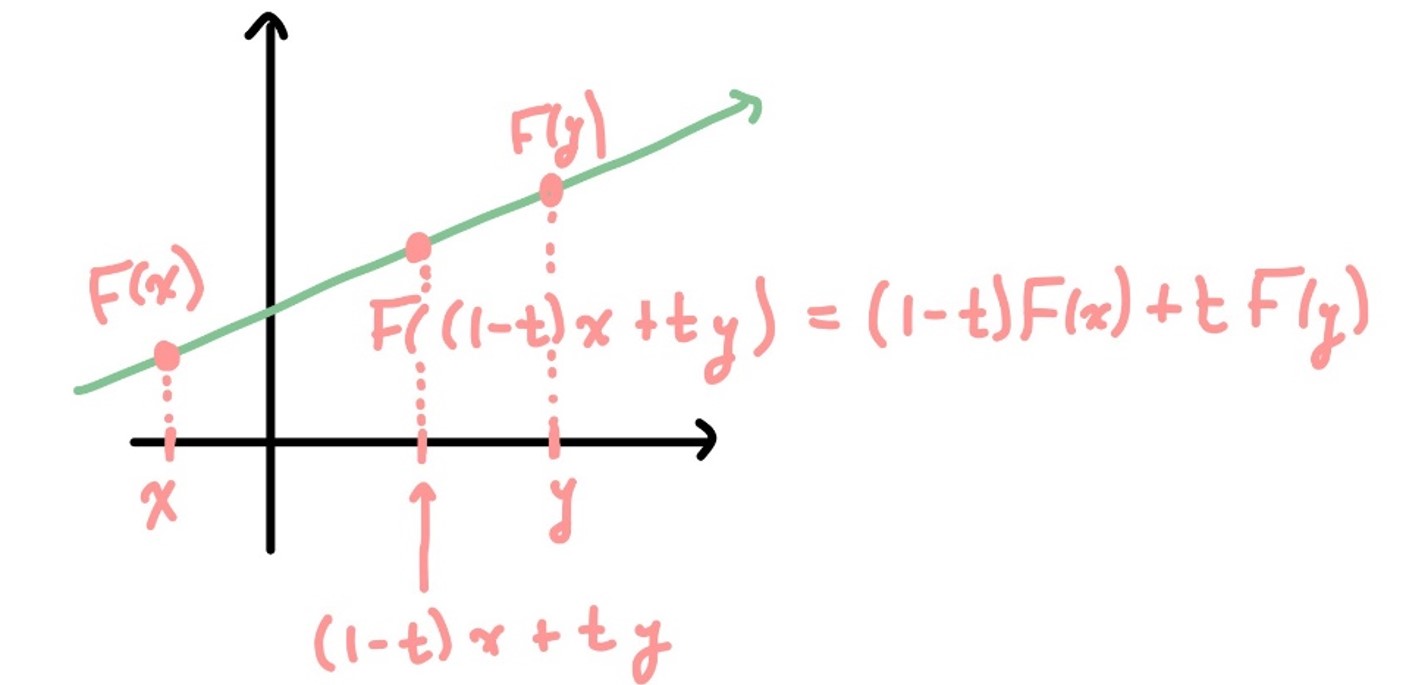 F(y)
F(x)
F((1-t)x + ty) = (1-t)F(x) + t F(y)
x
y
(1-t)x + ty